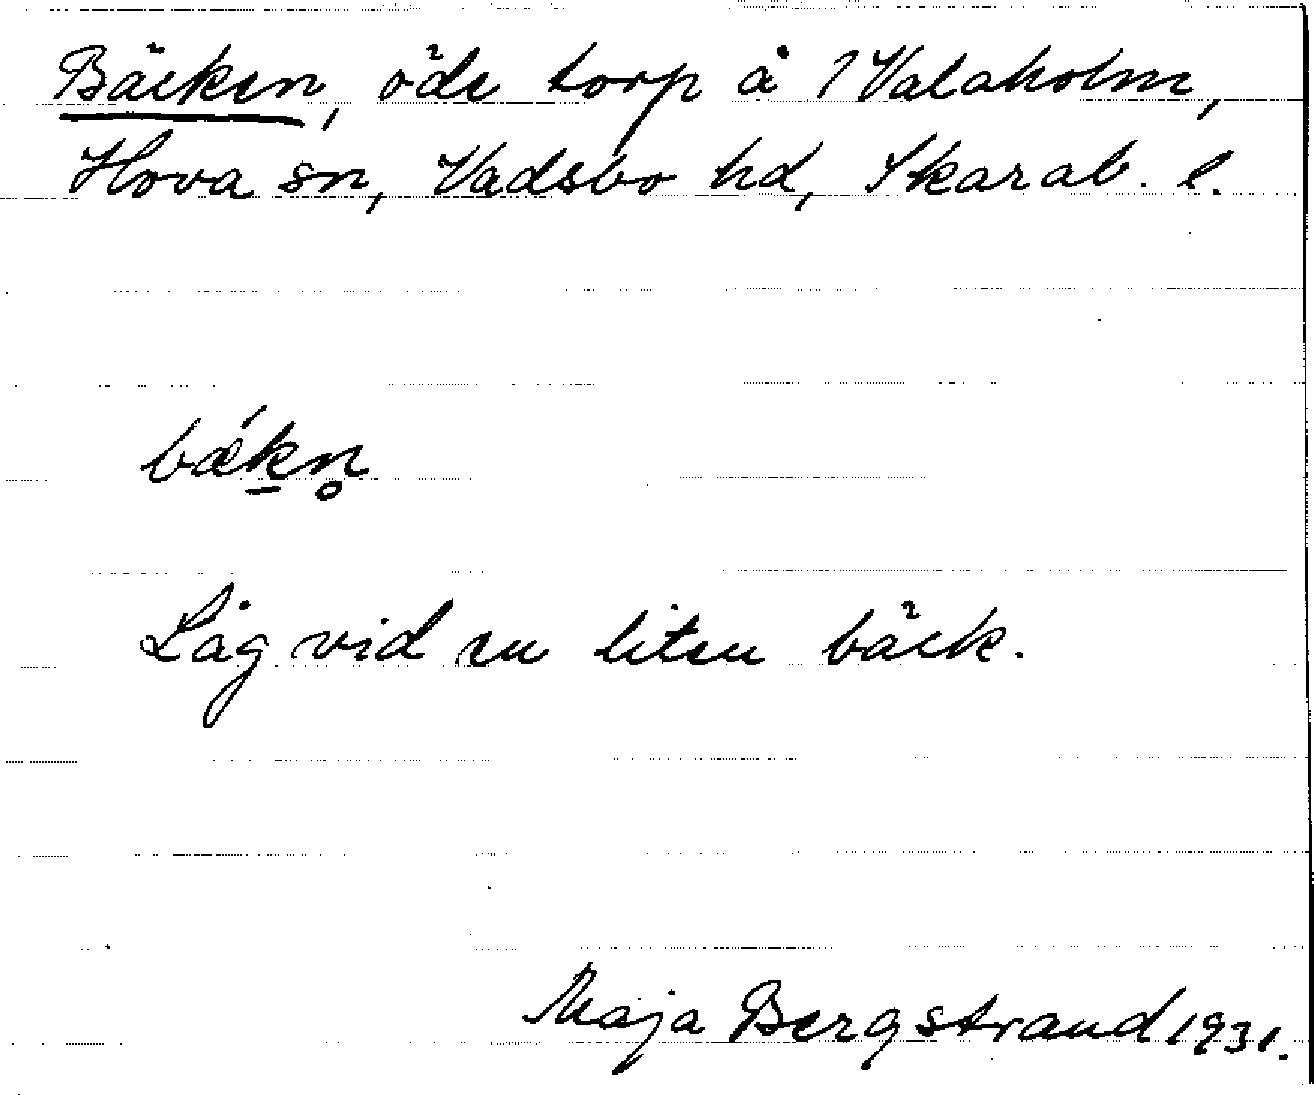 Bäcken, öde torp å 1 Valaholm,
Hova sn, Vadsbo hd, Skarab. l.
bǽk̠n̥
Låg vid en liten bäck.
Maja Bergstrand 1931.